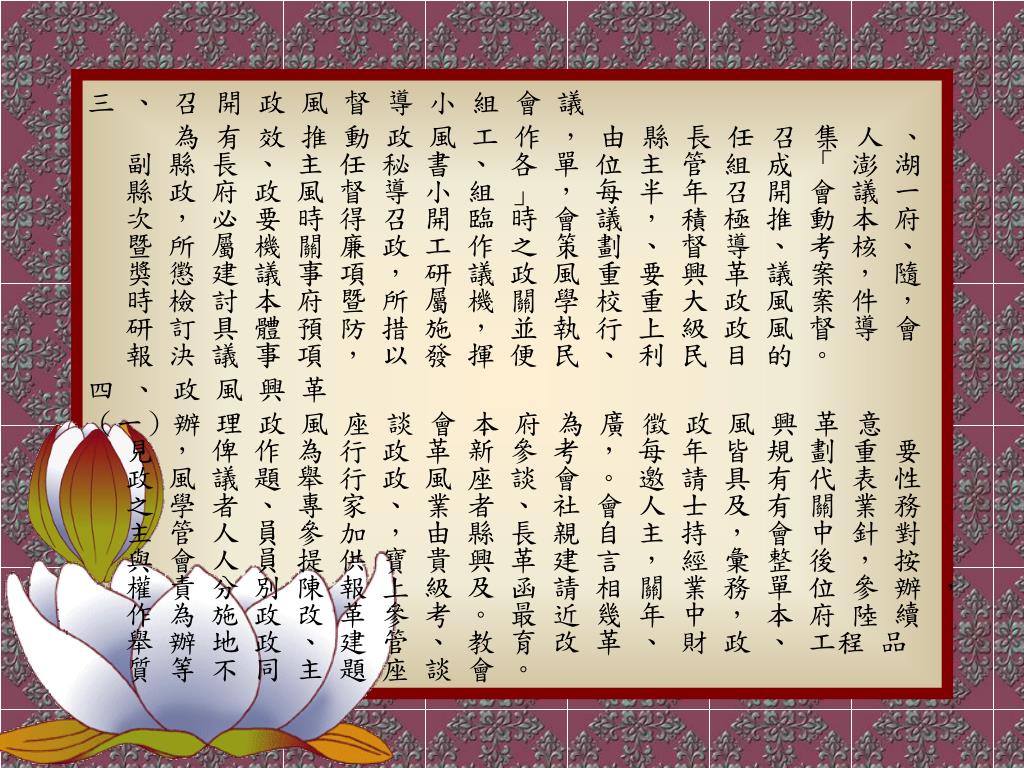 三、召開政風督導小組會議
為有效推動政風工作，由縣長任召集人、
副縣長、主任秘書、各單位主管組成「澎湖
縣政府政風督導小組」，每半年召開會議一
次，必要時得召開臨時會議，積極推動本府
暨所屬機關廉政工作之策劃、督導、考核、
獎懲建議事項，研議政風興革重要議案，隨
時檢討本府暨所屬機關學校重大政風案件，
研訂具體預防措施，並執行上級政風督導會
報決議事項，以發揮便民、利民目的。
四、政風興革
（一）辦理政風座談會本府為廣徵政風興革意
見，俾作為行政革新參考，每年皆規劃重要
政風議題舉行政風座談會。邀請具有代表性
之學者、專家、業者、社會人士及有關業務
主管人員參加，由縣長親自主持，會中針對
與會人員提供寶貴興革建言，經彙整後，按
權責分別陳報上級及函請相關業務單位參辦，
作為施政改革參考。最近幾年中，本府陸續
舉辦地政、建管、教育改革、財政、工程品
質等不同主題座談會。